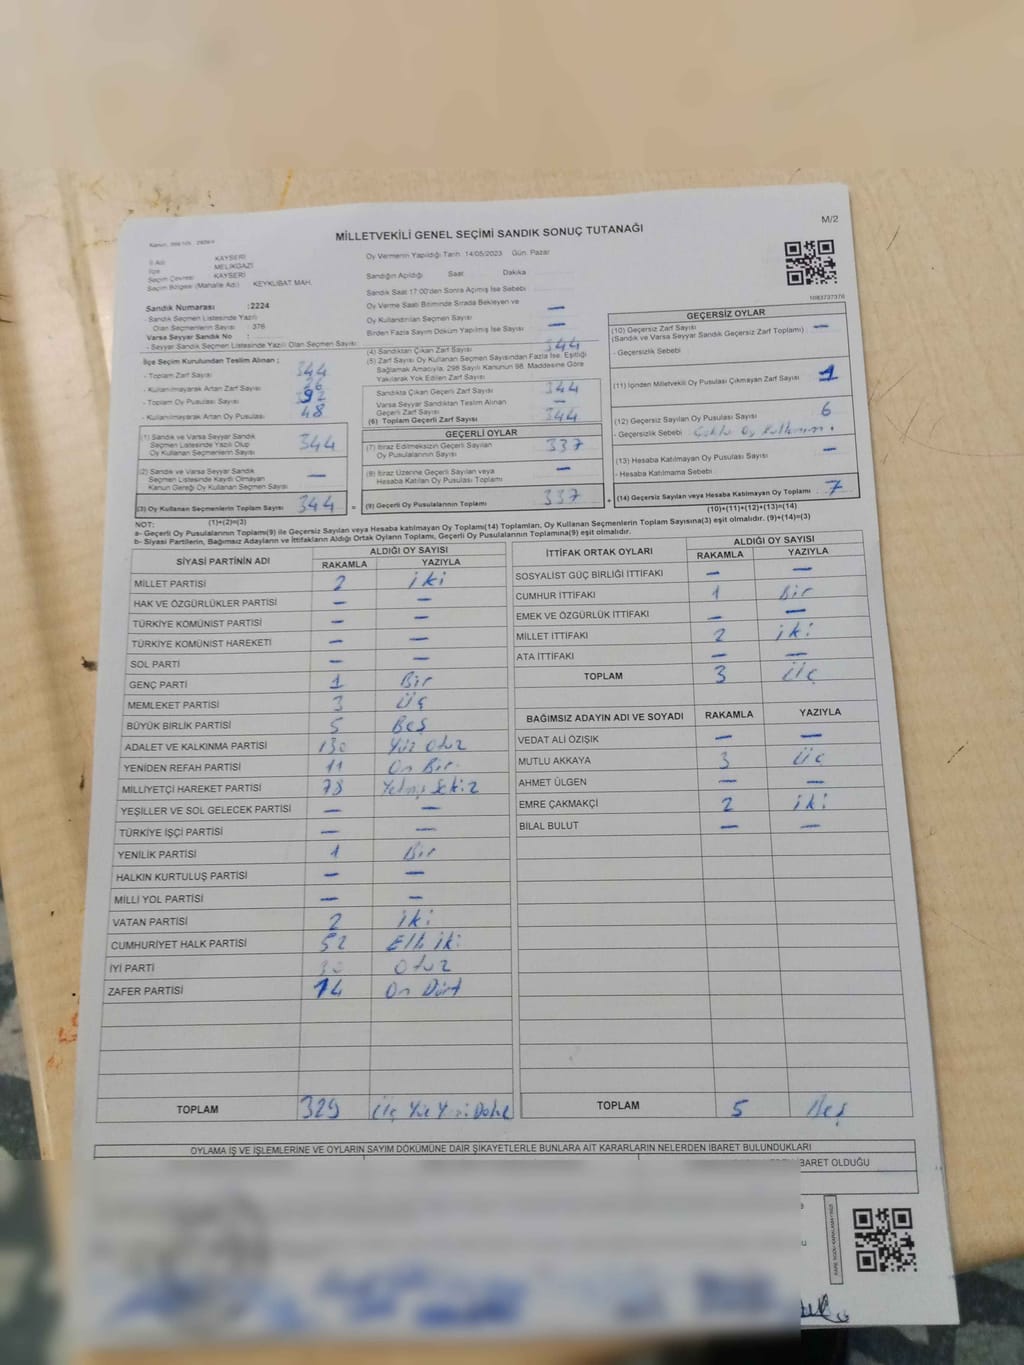 M/2
MİLLETVEKİLİ GENEL SEÇİMİ SANDIK SONUÇ TUTANAĞI
İl Adı : KAYSERİ
İlçe : MELİKGAZİ
Seçim Çevresi : KAYSERİ
Seçim Bölgesi (Mahalle Adı) KEYKUBAT MAH.
Oy Vermenin Yapıldığı Tarih 14/05/2023 Gün. Pazar
Sandığın Açıldığı Saat Dakika
Sandık Saat 17:00'den Sonra Açılmış İse Sebebi
Oy Verme Saati Bitiminde Sırada Bekleyen ve
Oy Kullandırılan Seçmen Sayısı —
Birden Fazla Sayım Döküm Yapılmış İse Sayısı —
1083737376
Sandık Numarası :2224
- Sandık Seçmen Listesinde Yazılı
Olan Seçmenlerin Sayısı : 376
Varsa Seyyar Sandık No :
- Seyyar Sandık Seçmen Listesinde Yazılı Olan Seçmen Sayısı
İlçe Seçim Kurulundan Teslim Alınan ;
- Toplam Zarf Sayısı
- Kullanılmayarak Artan Zarf Sayısı
- Toplam Oy Pusulası Sayısı
- Kullanılmayarak Artan Oy Pusulası 48
(1) Sandık ve Varsa Seyyar Sandık
Seçmen Listesinde Yazılı Olup
Oy Kullanan Seçmenlerin Sayısı 344
(2) Sandık ve Varsa Seyyar Sandık
Seçmen Listesinde Kayıtlı Olmayan
Kanun Gereği Oy Kullanan Seçmen Sayısı —
(3) Oy Kullanan Seçmenlerin Toplam Sayısı 344 =
(1)+(2)=(3)
(4) Sandıktan Çıkan Zarf Sayısı 344
(5) Zarf Sayısı Oy Kullanan Seçmen Sayısından Fazla İse, Eşitliği
Sağlamak Amacıyla, 298 Sayılı Kanunun 98. Maddesine Göre
Yakılarak Yok Edilen Zarf Sayısı —
Sandıkta Çıkan Geçerli Zarf Sayısı 344
Varsa Seyyar Sandıktan Teslim Alınan
Geçerli Zarf Sayısı —
(6) Toplam Geçerli Zarf Sayısı 344
GEÇERLİ OYLAR
(7) İtiraz Edilmeksizin Geçerli Sayılan
Oy Pusulasının Sayısı 337
(8) İtiraz Üzerine Geçerli Sayılan veya
Hesaba Katılan Oy Pusulası Sayısı —
(9) Geçerli Oy Pusulalarının Toplamı 337 +
GEÇERSİZ OYLAR
(10) Geçersiz Zarf Sayısı —
(Sandık ve Varsa Seyyar Sandık Geçersiz Zarf Toplamı)
- Geçersizlik Sebebi
(11) İçinden Milletvekili Oy Pusulası Çıkmayan Zarf Sayısı 1
(12) Geçersiz Sayılan Oy Pusulası Sayısı 6
- Geçersizlik Sebebi
(13) Hesaba Katılmayan Oy Pusulası Sayısı —
- Hesaba Katılmama Sebebi
(14) Geçersiz Sayılan veya Hesaba Katılmayan Oy Toplamı 7
(10)+(11)+(12)+(13)=(14)
NOT:
a- Geçerli Oy Pusulalarının Toplamı(9) ile Geçersiz Sayılan veya Hesaba katılmayan Oy Toplamı(14) Toplamları, Oy Kullanan Seçmenlerin Toplam Sayısına(3) eşit olmalıdır. (9)+(14)=(3)
b- Siyasi Partilerin, Bağımsız Adayların ve İttifakların Aldığı Ortak Oyların Toplamı, Geçerli Oy Pusulalarının Toplamına(9) eşit olmalıdır.
SİYASİ PARTİNİN ADI ALDIĞI OY SAYISI
RAKAMLA YAZIYLA
MİLLET PARTİSİ 2 iki
HAK VE ÖZGÜRLÜKLER PARTİSİ — —
TÜRKİYE KOMÜNİST PARTİSİ — —
TÜRKİYE KOMÜNİST HAREKETİ — —
SOL PARTİ — —
GENÇ PARTİ 1 Bir
MEMLEKET PARTİSİ 3 Üç
BÜYÜK BİRLİK PARTİSİ 5 Beş
ADALET VE KALKINMA PARTİSİ 130 Yüz Otuz
YENİDEN REFAH PARTİSİ 11 On Bir
MİLLİYETÇİ HAREKET PARTİSİ 78 Yetmiş Sekiz
YEŞİLLER VE SOL GELECEK PARTİSİ — —
TÜRKİYE İŞÇİ PARTİSİ — —
YENİLİK PARTİSİ 1 Bir
HALKIN KURTULUŞ PARTİSİ — —
MİLLİ YOL PARTİSİ — —
VATAN PARTİSİ 2 İki
CUMHURİYET HALK PARTİSİ 52 Elli iki
İYİ PARTİ 30 Otuz
ZAFER PARTİSİ 14 On Dört
TOPLAM 329 Üç Yüz Yirmi Dokuz
İTTİFAK ORTAK OYLARI ALDIĞI OY SAYISI
RAKAMLA YAZIYLA
SOSYALİST GÜÇ BİRLİĞİ İTTİFAKI — —
CUMHUR İTTİFAKI 1 Bir
EMEK VE ÖZGÜRLÜK İTTİFAKI — —
MİLLET İTTİFAKI 2 iki
ATA İTTİFAKI — —
TOPLAM 3 Üç
BAĞIMSIZ ADAYIN ADI VE SOYADI RAKAMLA YAZIYLA
VEDAT ALİ ÖZIŞIK — —
MUTLU AKKAYA 3 Üç
AHMET ÜLGEN — —
EMRE ÇAKMAKÇİ 2 iki
BİLAL BULUT — —
TOPLAM 5 Beş
OYLAMA İŞ VE İŞLEMLERİNE VE OYLARIN SAYIM DÖKÜMÜNE DAİR ŞİKAYETLERLE BUNLARA AİT KARARLARIN NELERDEN İBARET BULUNDUKLARI
İBARET OLDUĞU